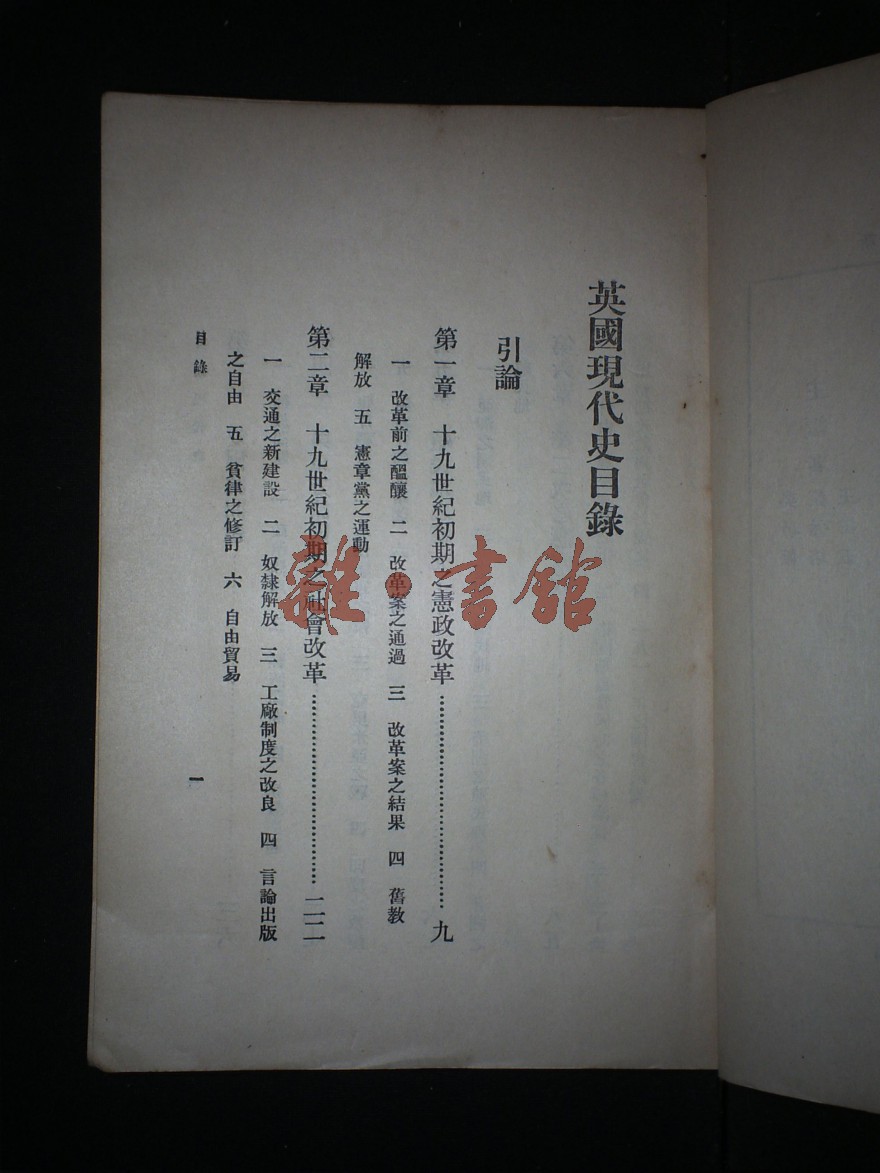 英國現代史目錄
引論
第一章　十九世紀初期之憲政改革……九
一　改革前之醞釀　二　改革案之通過　三　改革案之結果　四　舊教
解放　五　憲章黨之運動
第二章　十九世紀初期之社會改革……二二
一　交通之新建設　二　奴隸解放　三　工廠制度之改良　四　言論出版
之自由　五　貧律之修訂　六　自由貿易
目錄
一
雜·書館